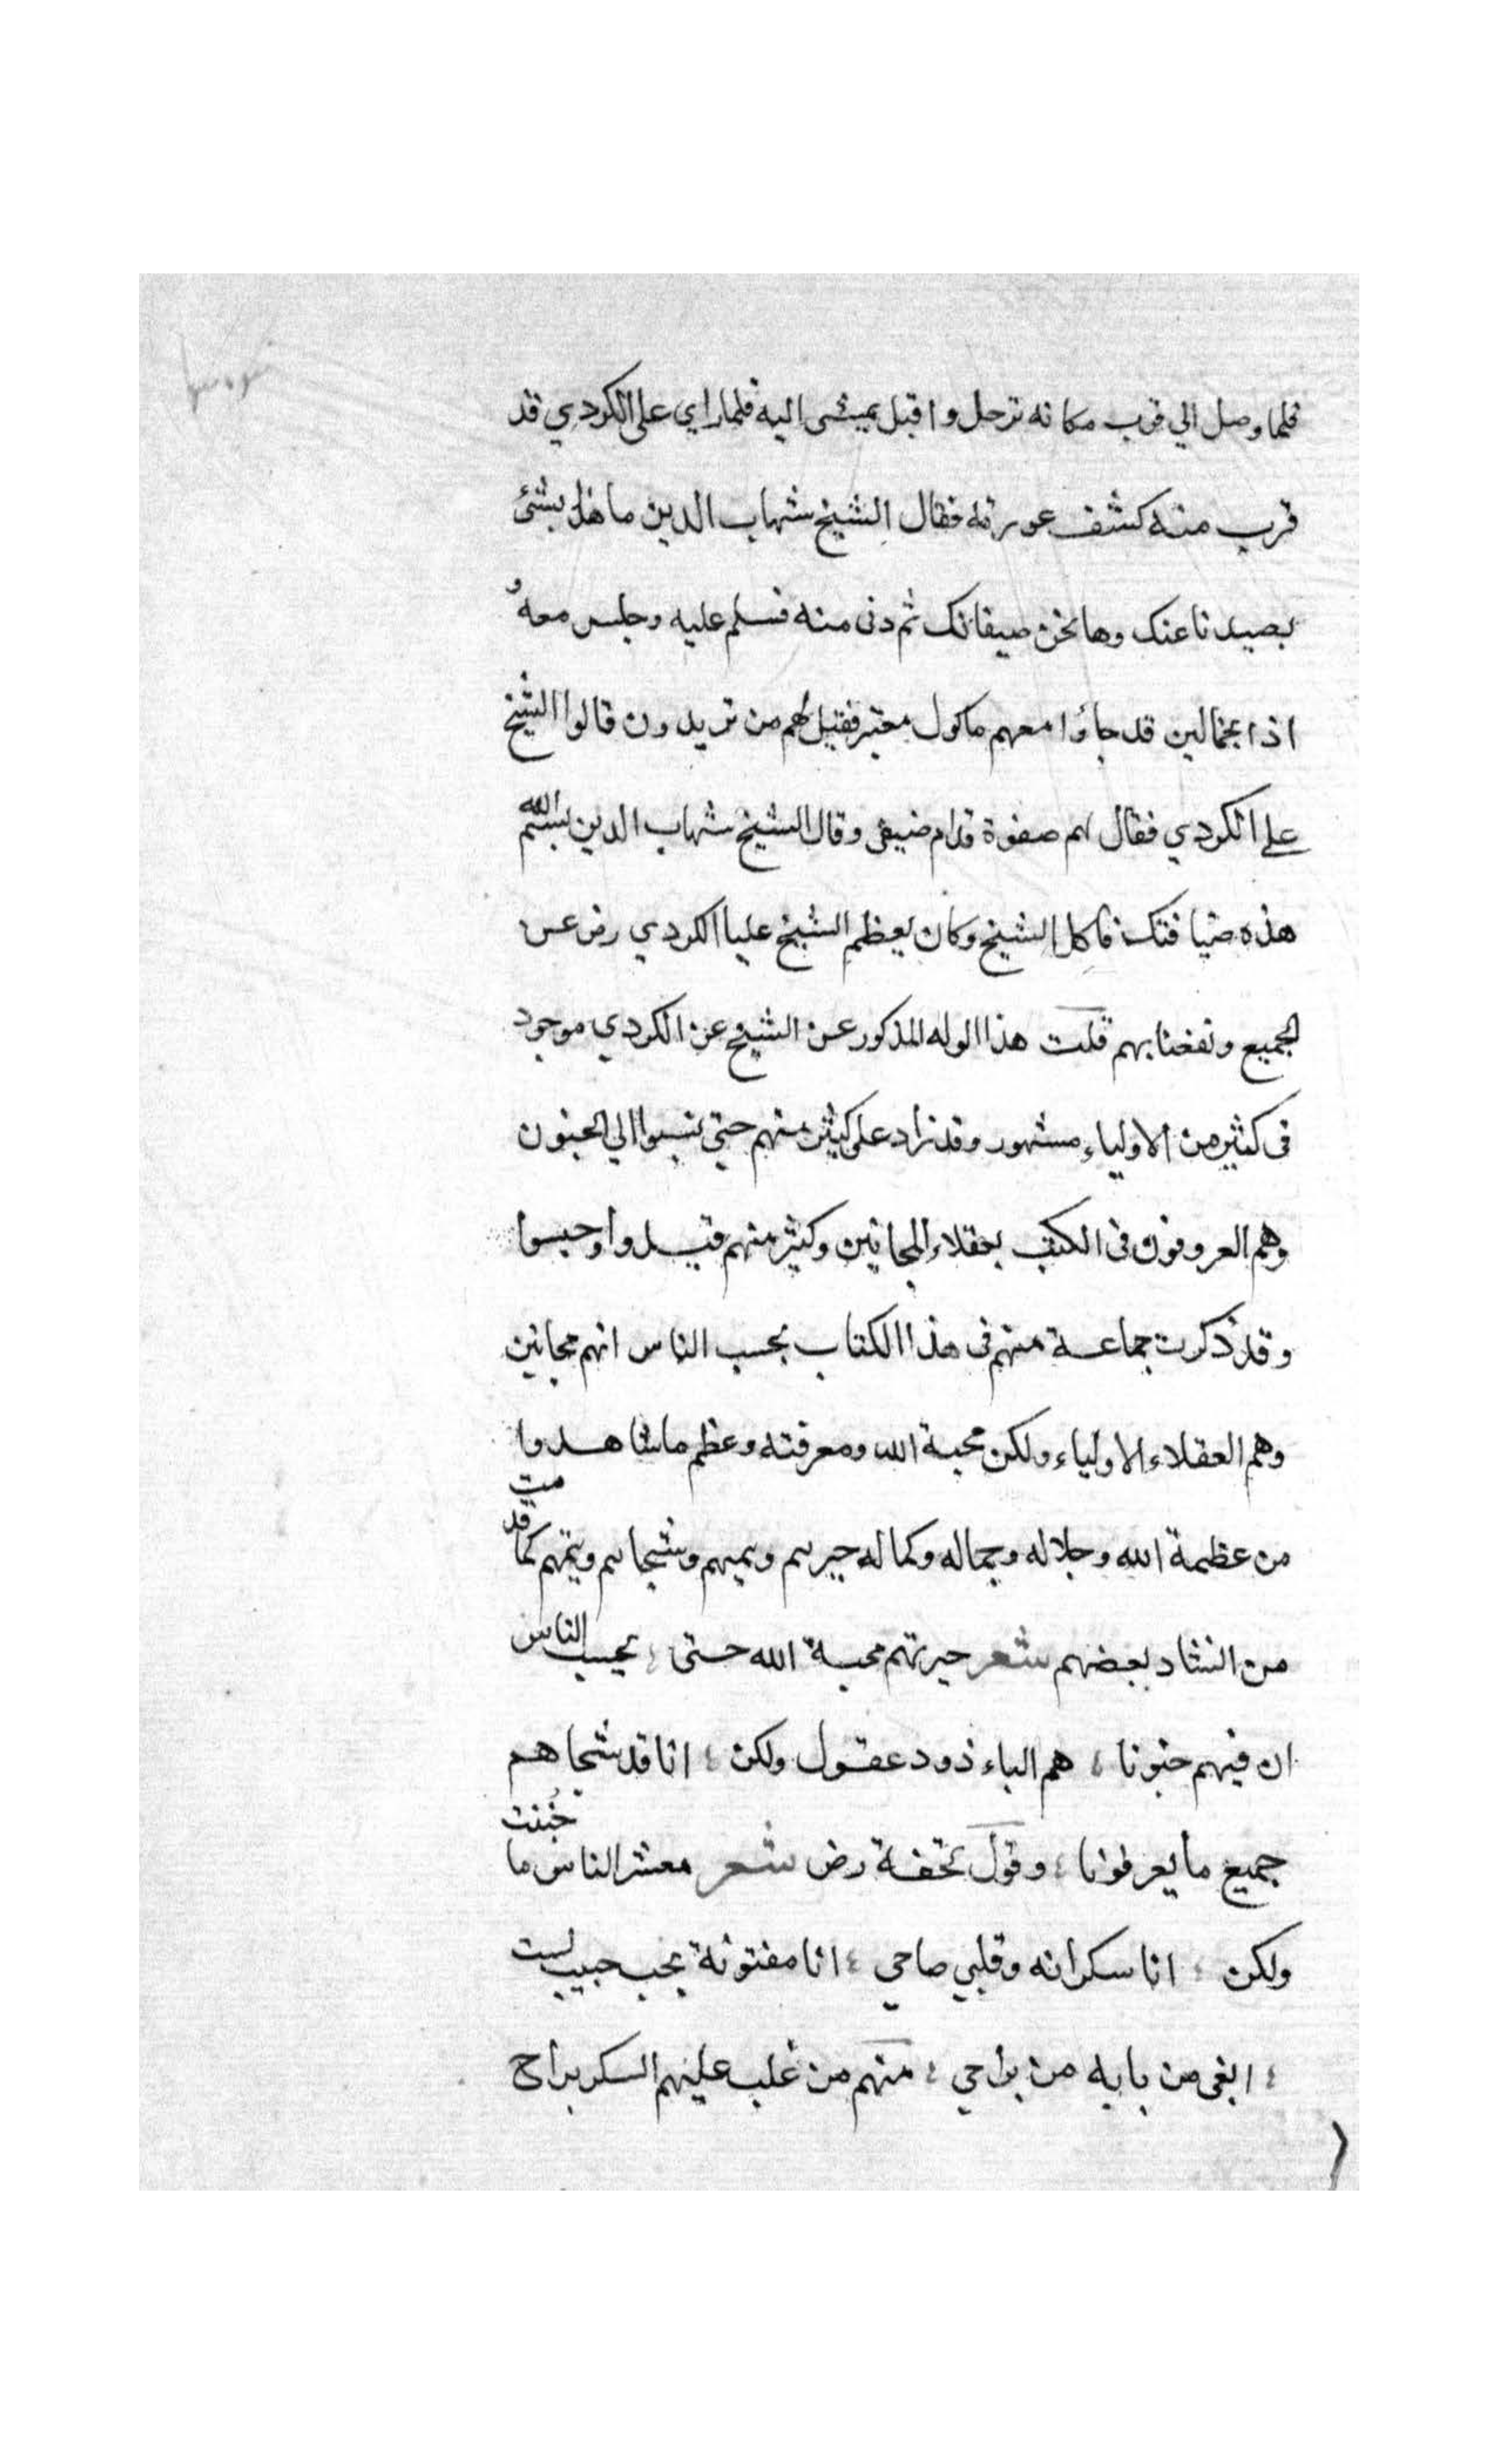 فلما وصل الي قرب مكانه ترجل واقبل يمشى اليه فلما راي على الكردي قد
قرب منه كشف عورته فقال الشيخ شهاب الدين ما هذا بشئ
بصيدنا عنك وها نحن ضيفانك ثم دنى منه فسلم عليه وجلس معه و
اذا بحمالين قد جاؤا معهم ماكول معتبر فقيل لهم من تريدون قالوا الشيخ
على الكردي فقال لهم صفوة قدام ضيفى وقال الشيخ شهاب الدين بسم الله
هذه ضيافتك فاكل الشيخ وكان يعظم الشيخ عليا الكردي رض عن
الجميع ونفعنا بهم قلت هذا الوله المذكور عن الشيخ عن الكردي موجود
فى كثير من الاولياء مشهور وقد زاد على كثير منهم حتى نسبوا الي الجنون
وهم العروفون فى الكتب بعقلاء المجانين وكثير منهم قيدوا وحبسوا
وقد ذكرت جماعة منهم فى هذا الكتاب بحسب الناس انهم مجانين
وهم العقلاء الاولياء ولكن محبة الله ومعرفته وعظم ما شاهدوا
من عظمة الله وجلاله وجماله وكماله حيرهم ويميهم وشجاهم ويتمهم كما قد مت
من انشاد بعضهم شعر حيرتهم محبة الله حتى ؛ يحسب الناس
ان فيهم جنونا ؛ هم الباء ذود عقول ولكن ؛ انا قد شجاهم
جميع ما يعرفونا ؛ وقول تحفة رض شعر معشر الناس ما جُننت
ولكن ؛ انا سكرانه وقلبي صاحي ؛ انا مفتونة بحب حبيب لست
؛ ابغى من بابه من براحي ؛ منهم من غلب عليهم السكر براح